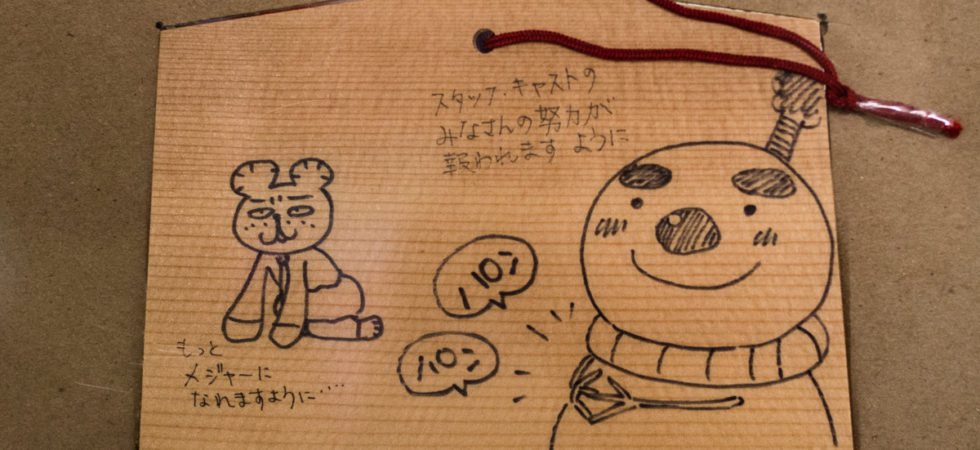 スタッフ・キャストの
みなさんの努力が
報われますように
パン
パン
もっと
メジャーに
なれますように……